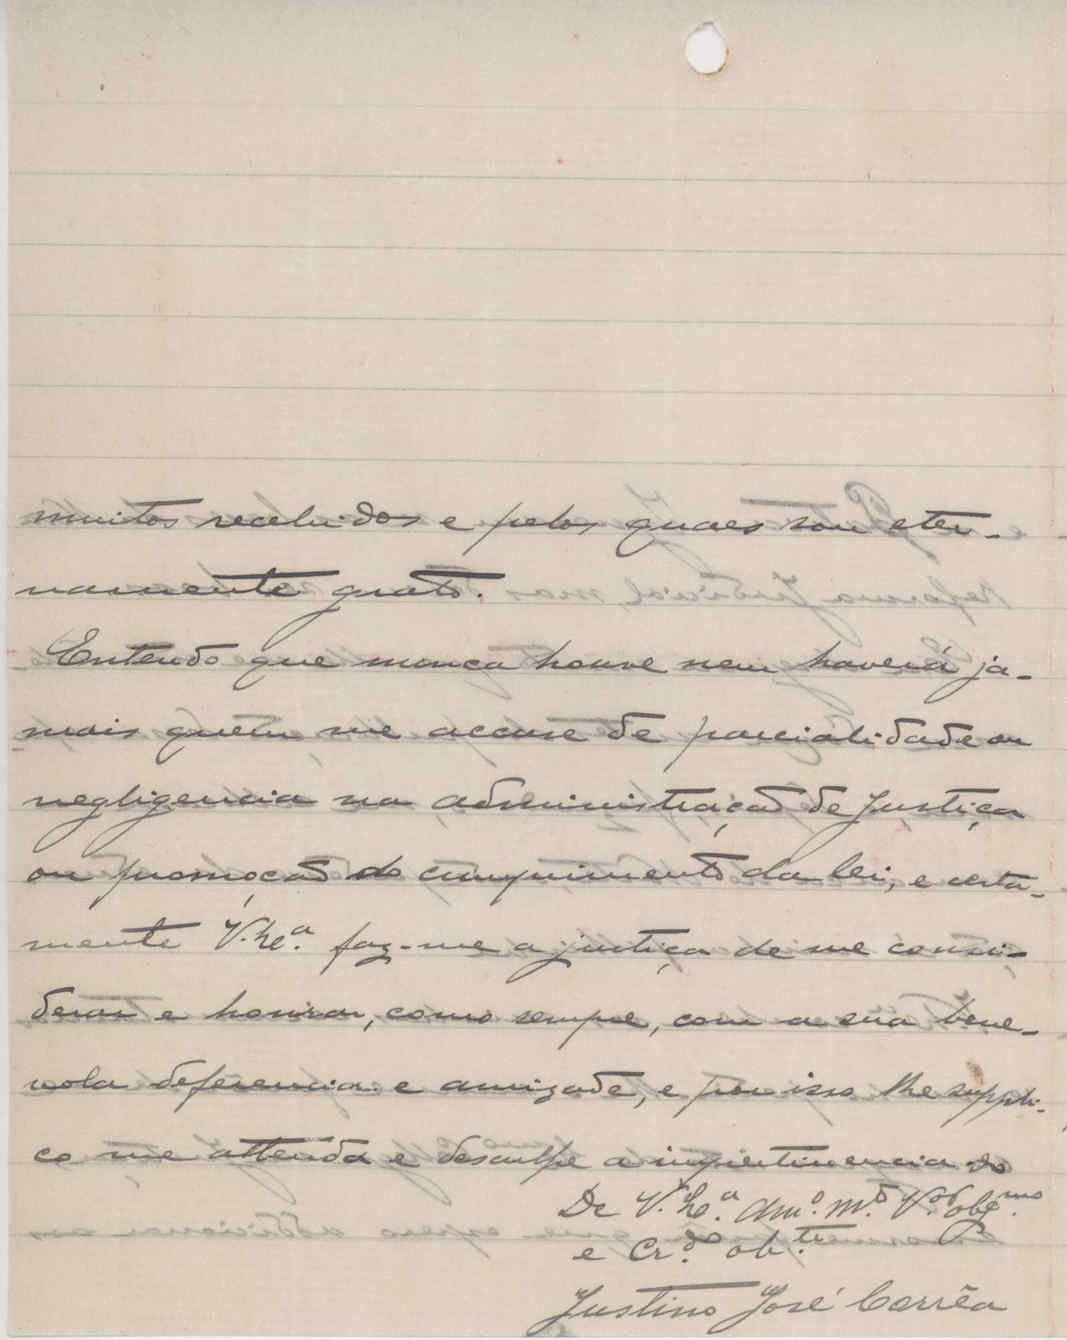 muitos recebidos e pelos quaes sou eter-
namente grato.
Entendo que nunca houve nem haverá ja-
mais quem me accuse de parcialidade ou
negligencia na administração de justiça
ou promoção do cumprimento da lei, e certa-
mente V. Ex.ª faz-me a justiça de me consi-
derar e honrar, como sempre, com a sua bene-
vola deferencia e amizade, e por isso lhe suppli-
co me attenda e desculpe a impertinencia do
De V. Ex.ª Am.º m.to obg.mo
e Cr.do ob.te
Justino José Corrêa